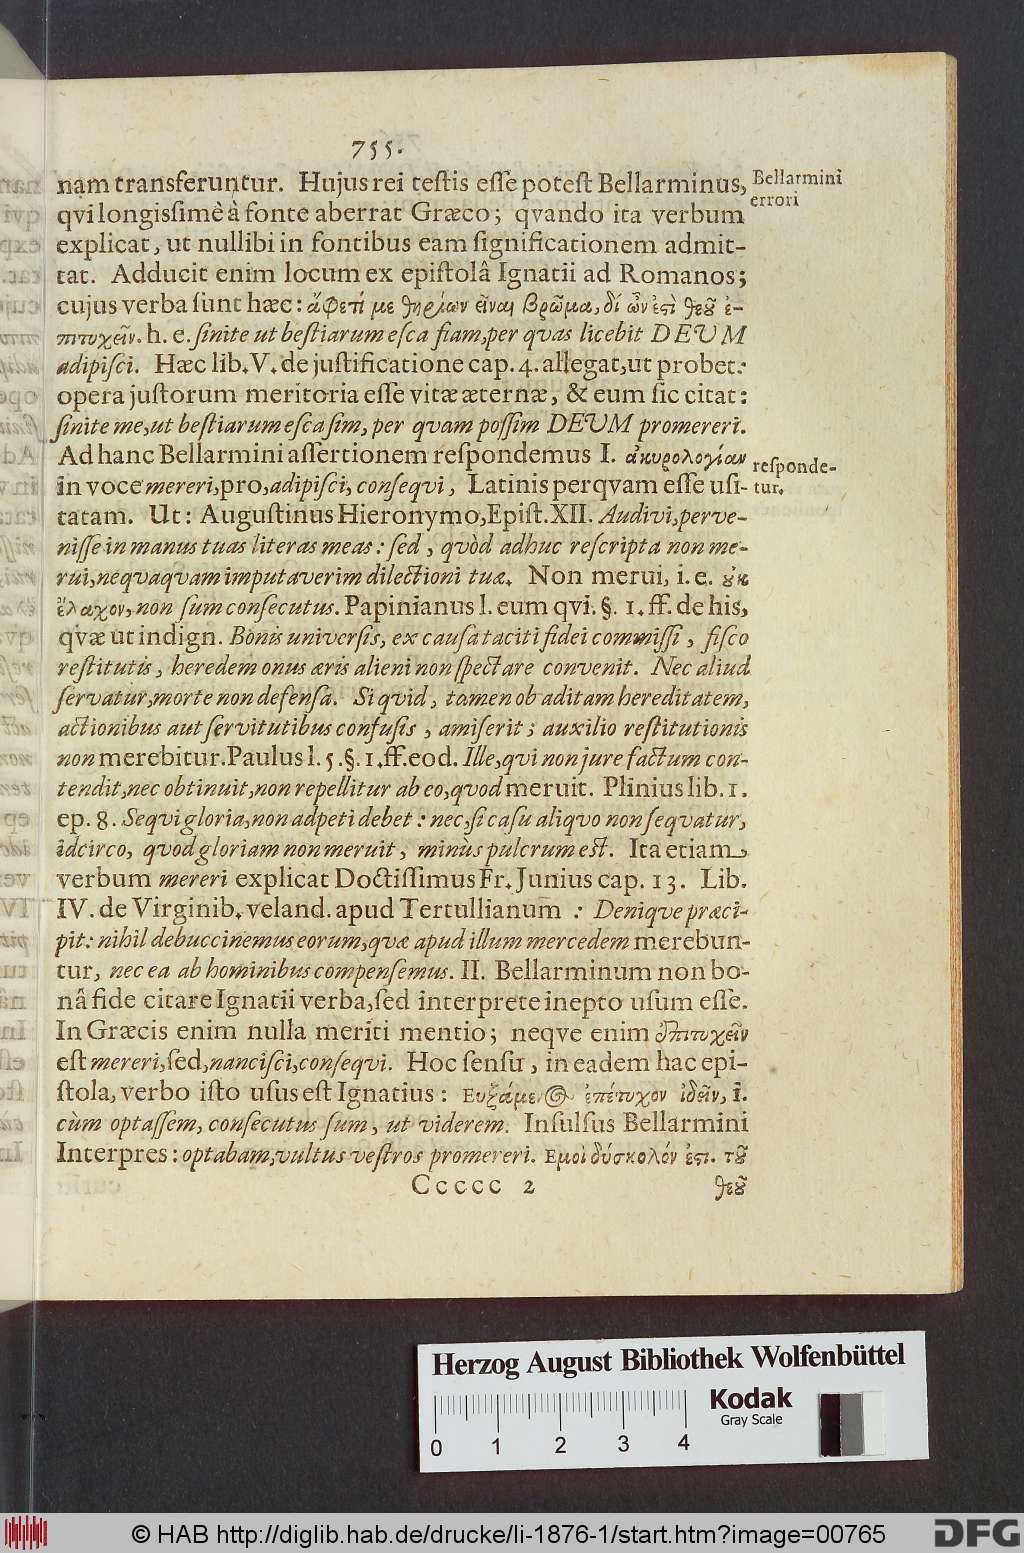 755.
nam transferuntur. Hujus rei testis esse potest Bellarminus,
Bellarmini
errori
qvi longissimè à fonte aberrat Græco; qvando ita verbum
explicat, ut nullibi in fontibus eam significationem admit-
tat. Adducit enim locum ex epistolâ Ignatii ad Romanos;
cujus verba sunt hæc: ἄφετέ με θηρίων εἶναι βρῶμα, δἰ ὧν ἐστὶ θεοῦ ἐ-
πιτυχεῖν. h. e. sinite ut bestiarum esca fiam, per qvas licebit DEUM
adipisci. Hæc lib. V. de justificatione cap. 4. allegat, ut probet:
opera justorum meritoria esse vitæ æternæ, & eum sic citat:
sinite me, ut bestiarum esca sim, per qvam possim DEUM promereri.
Ad hanc Bellarmini assertionem respondemus I. ἀκυρολογίαν
responde-
tur.
in voce mereri, pro, adipisci, conseqvi, Latinis perqvam esse usi-
tatam. Ut: Augustinus Hieronymo, Epist. XII. Audivi, perve-
nisse in manus tuas literas meas: sed, qvòd adhuc rescripta non me-
rui, neqvaqvam imputaverim dilectioni tuæ. Non merui, i. e. οὐκ
ἔλαχον, non sum consecutus. Papinianus l. eum qvi. §. 1. ff. de his,
qvæ ut indign. Bonis universis, ex causa taciti fidei commissi, fisco
restitutis, heredem onus æris alieni non spectare convenit. Nec aliud
servatur, morte non defensa. Si qvid, tamen ob aditam hereditatem,
actionibus aut servitutibus confusis, amiserit; auxilio restitutionis
non merebitur. Paulus l. 5. §. 1. ff. eod. Ille, qvi non jure factum con-
tendit, nec obtinuit, non repellitur ab eo, qvod meruit. Plinius lib. 1.
ep. 8. Seqvi gloria, non adpeti debet: nec, si casu aliqvo non seqvatur,
idcirco, qvod gloriam non meruit, minùs pulcrum est. Ita etiam
verbum mereri explicat Doctissimus Fr. Junius cap. 13. Lib.
IV. de Virginib. veland. apud Tertullianum: Deniqve præci-
pit: nihil debuccinemus eorum, qvæ apud illum mercedem merebun-
tur, nec ea ab hominibus compensemus. II. Bellarminum non bo-
nâ fide citare Ignatii verba, sed interprete inepto usum esse.
In Græcis enim nulla meriti mentio; neqve enim ἐπιτυχεῖν
est mereri, sed, nancisci, conseqvi. Hoc sensu, in eadem hac epi-
stola, verbo isto usus est Ignatius: Ευξάμενος ἐπέτυχον ἰδεῖν, i.
cùm optassem, consecutus sum, ut viderem. Insulsus Bellarmini
Interpres: optabam, vultus vestros promereri. Εμοὶ δύσκολόν ἐστι. τοῦ
Ccccc 2
θεοῦ
Herzog August Bibliothek Wolfenbüttel
Kodak
Gray Scale
0 1 2 3 4
© HAB http://diglib.hab.de/drucke/li-1876-1/start.htm?image=00765
DFG